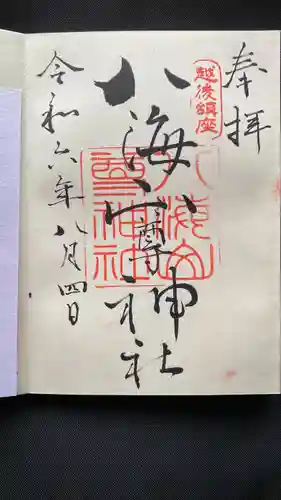 奉拝
越後鎮座
八海山尊神社
八海山尊神社
令和六年八月四日